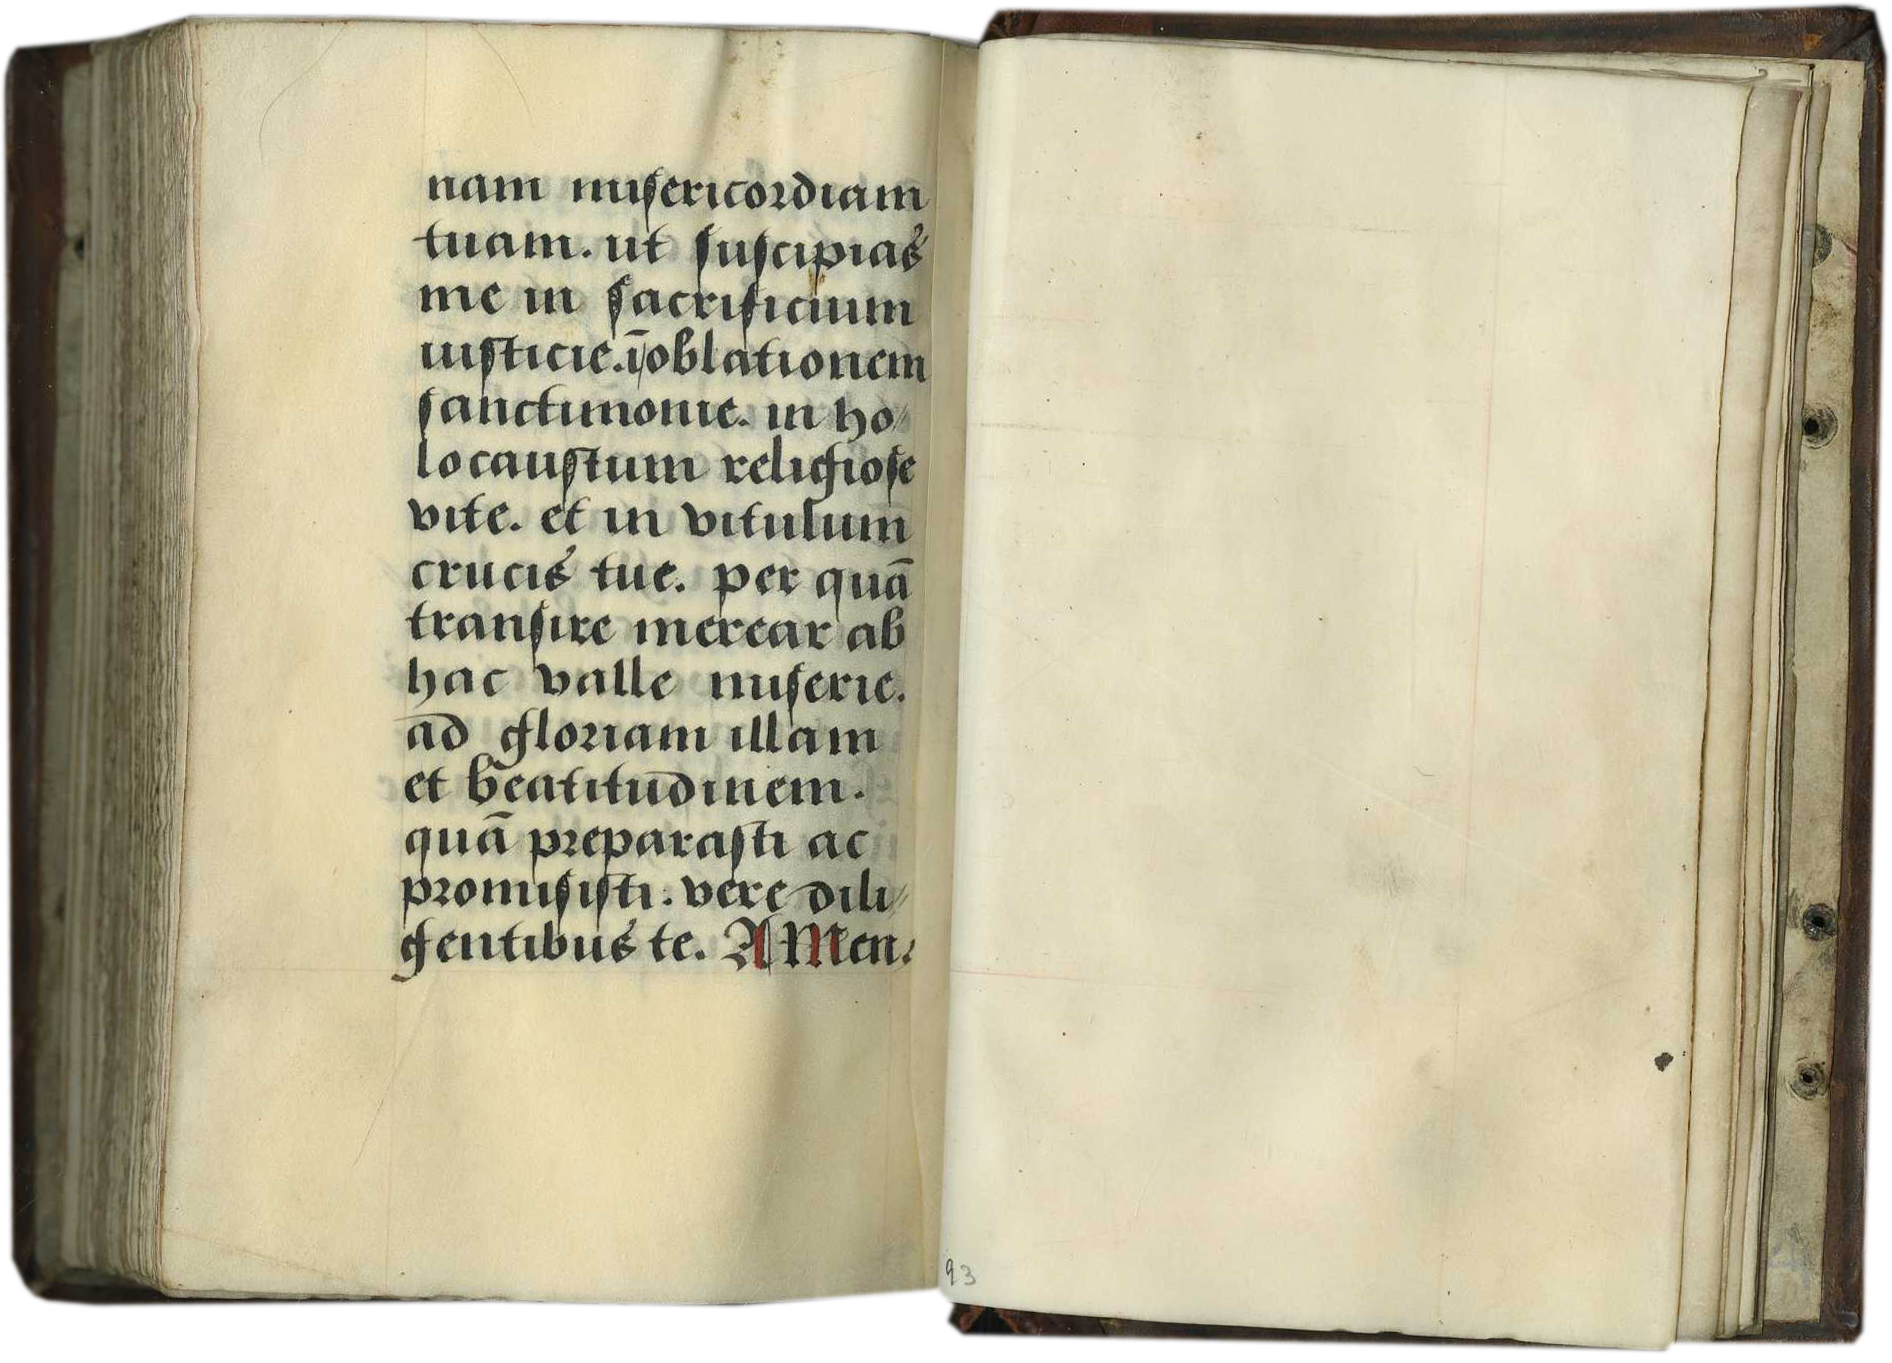 nam misericordiam
tuam. ut suscipias
me in sacrificium
iusticie. ī oblationem
sanctimonie. in ho⸗
locaustum religiose
vite. et in vitulum
crucis tue. per quā
transire merear ab
hac valle miserie.
ad gloriam illam
et beatitudinem.
quā preparasti ac
promisisti. vere dili⸗
gentibus te. AMen.
93